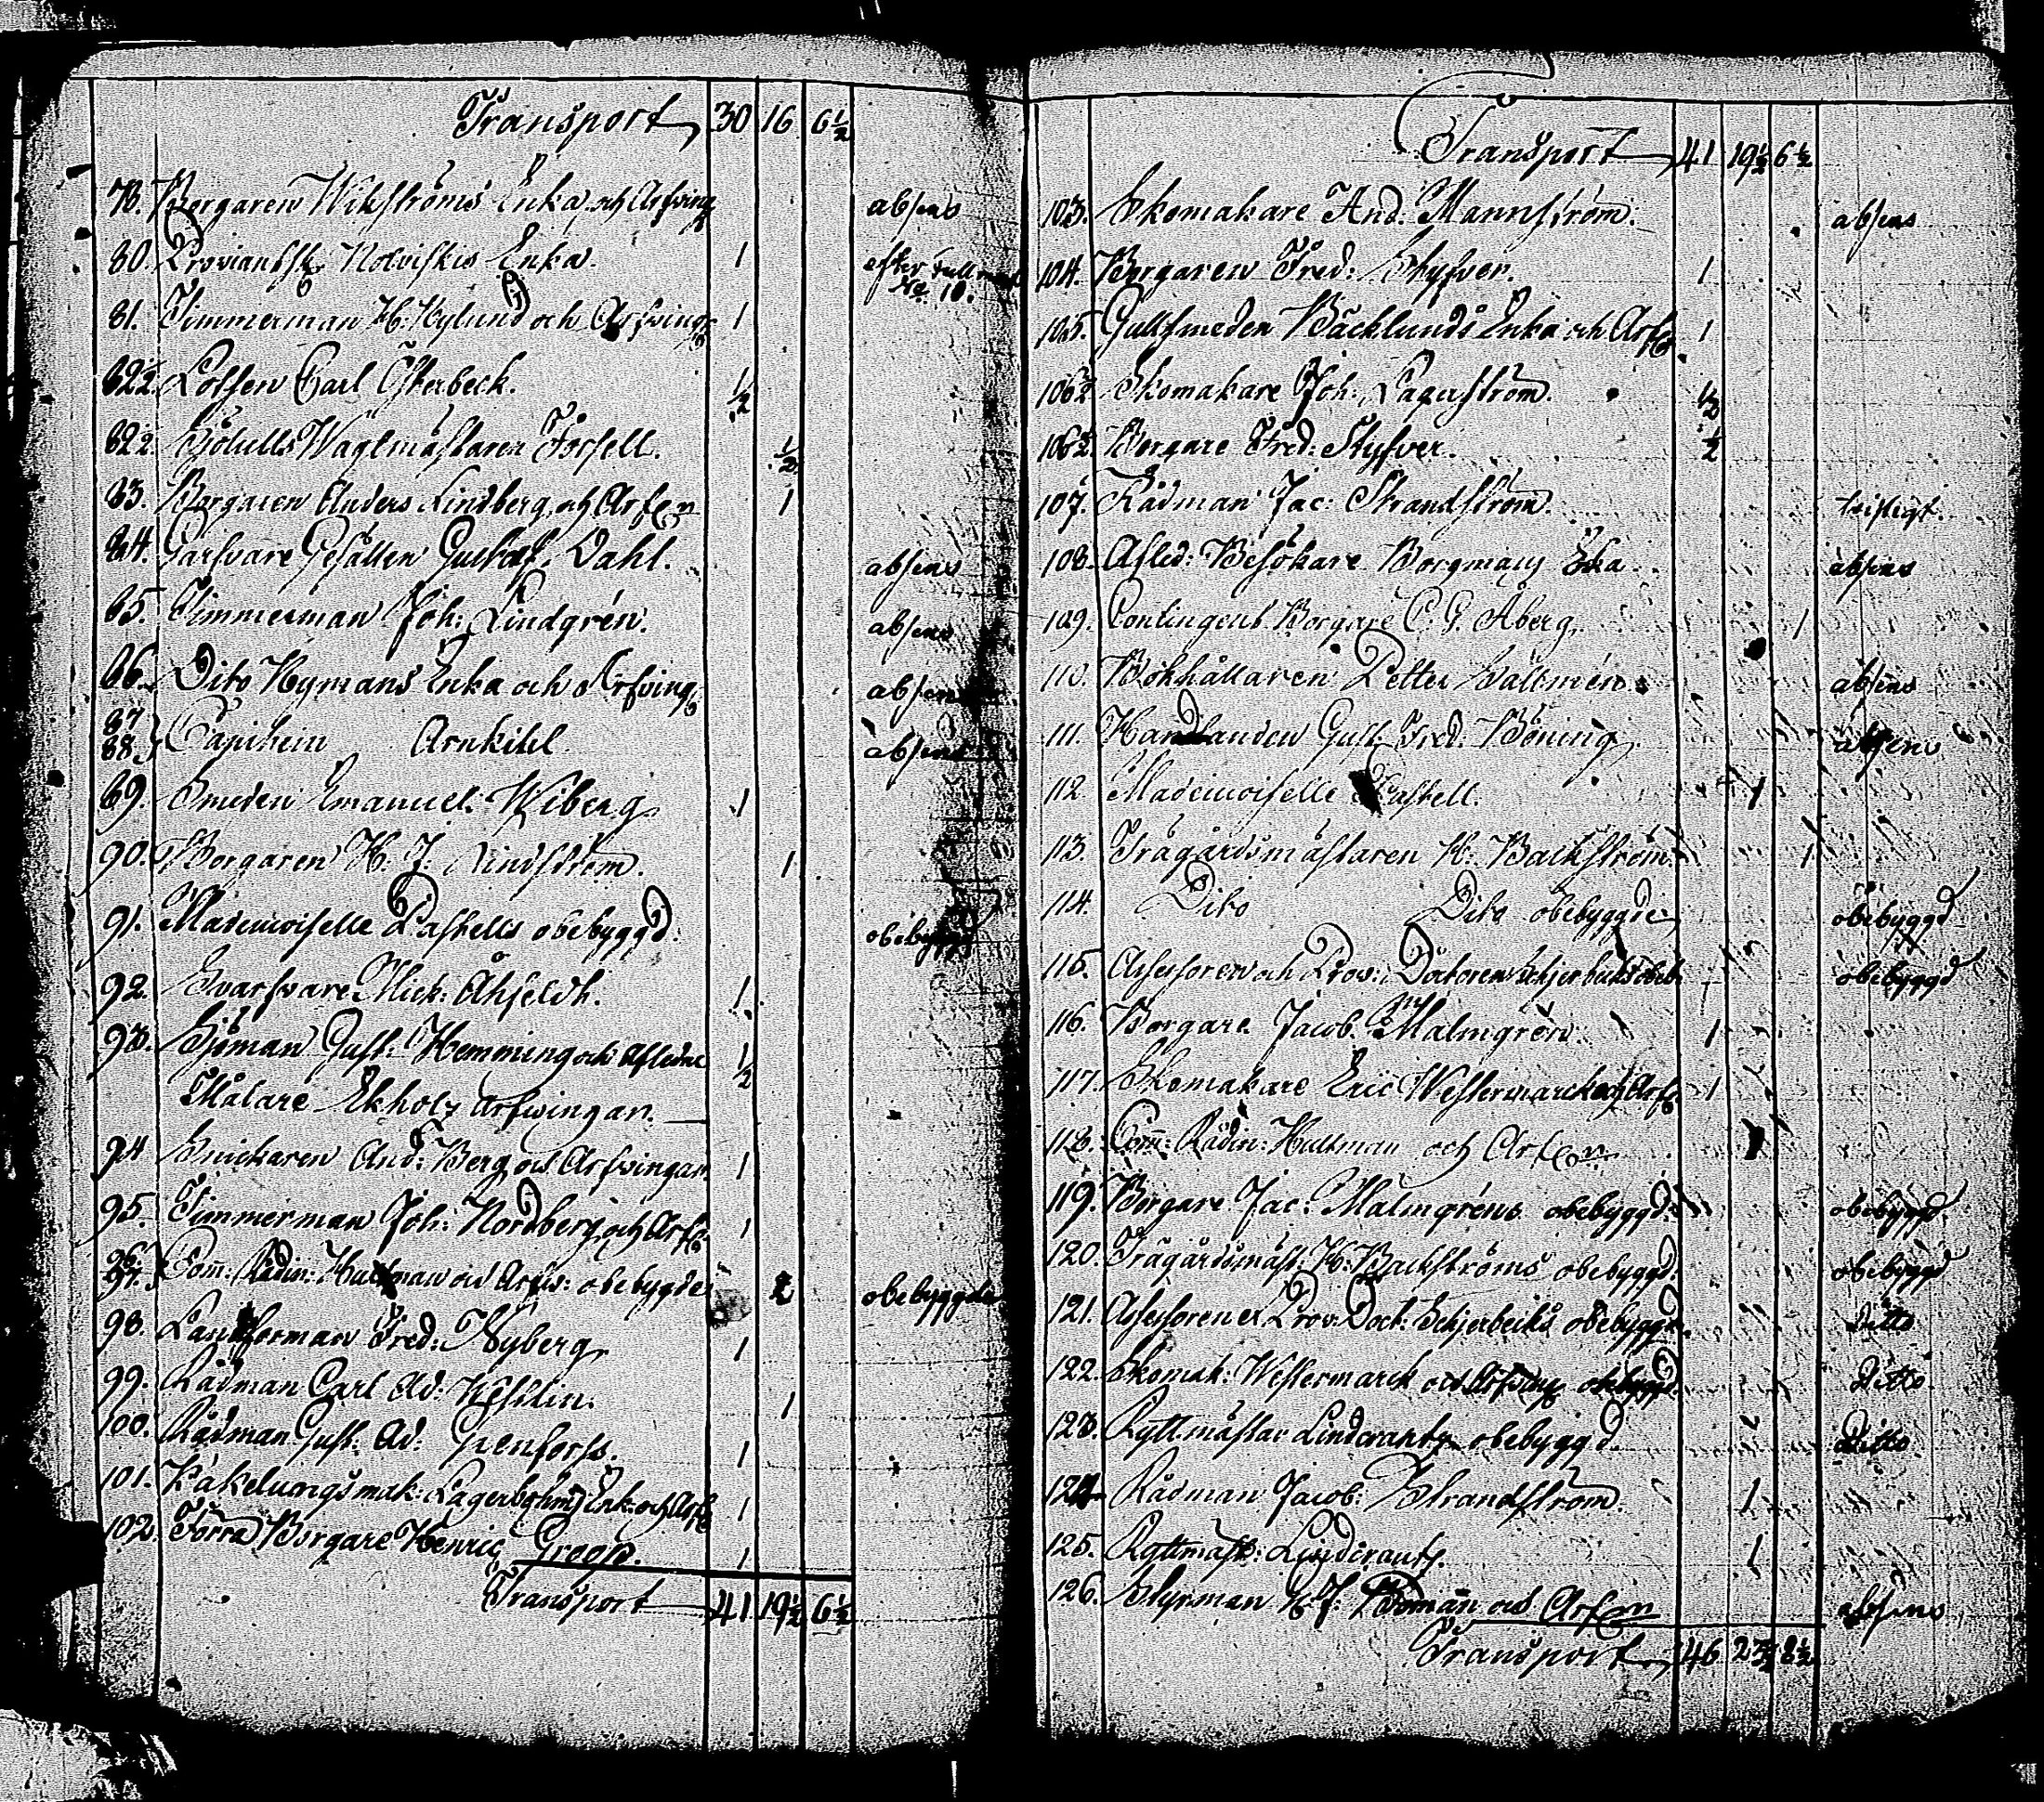 Transport 30 16 6½
78. Borgaren Wikströms Enka och Arfving absens
80. Enka. 1 efter No 10.
81. Timmerman H: Nylund och Arfving 1
82½. Lotsen Carl Österbeck. ½
82½. Sjötulls Wagtmästaren Forsell. ½
83. Borgaren Anders Lindberg och Arf 1
84. Garfvare Gesällen Gustaf Dahl. absens
85. Timmerman Joh: Lindgrén. absens
86. Dito Nymans Enka och Arfving absens
87
88. Capitein Arnkihl absens
89. Smeden Emanuel Wiberg 1
90. Borgaren H. J. Lindström. 1
91. Mademoiselle Pastells obebyggd. obebyggd
92. Svarfvare Mick: Åhfeldt. 1
93. Sjöman Gust: Hemming och Aflednе ½
Målare Ekholz Arfwingar.
94 Snickaren And: Berg och Arfwingar 1
95. Timmerman Joh: Nordberg och Arf 1
96.
97. Com: Rådin: Hultman och Arfw: obebygde 2 obebyggde
98. Fred: Nyberg 1
99. Rådman Carl Ad: 1
100. Rådman Gust: Ad: Grenforss. 1
101. Kakelungsmak: Enk: och Arf 1
102. Förra Borgare Henric Groop. 1
Transport 41 19½ 6½
Transport 41 19½ 6½
103. Skomakare And: Mannström. absens
104. Borgaren Fred: Styfver. 1
105. Gullsmeden Bäcklunds Enka och Arf 1
106½ Skomakare Joh: Lagerström. ½
106½ Borgare Fred: Styfver. ½
107. Rådman Jac: Strandström. tvistigt.
108. Afled: Besökare Borgmans Eka absens
109. Contingent Borgare C. G. Åberg. 1
110. Bokhållaren Petter Sältmén absens
111. Handlanden Gust. Fred: Böning absens
112 Mademoiselle Pastell. 1
113. Trägårdsmästaren H: Backström. 1
114. Dito Dito obebyggde obebyggd
115. Assessoren och Prov: Doctoren obebyggd
116. Borgare Jacob Malmgrén. 1
117. Skomakare Eric Westermarck och Arf 1
118. Com: Rådin: Hultman och Arf 1
119. Borgare Jac: Malmgréns obebyggd: obebyggd
120. Trägårdsmäst: H: Backströms obebyggd. obebyggd
121. Assessoren et Prov: Doct: obebyggd. ditto
122. Skomak: Westermarck och Arfving obebyggd. ditto
123. Ryttmästar Lindcrantz obebyggd. Ditto
124 Rådman Jacob: Strandström. 1
125. Ryttmäst: Lindcrantz. 1
126. Styrman H J: Boman och Arf absens
Transport 46 2 8½